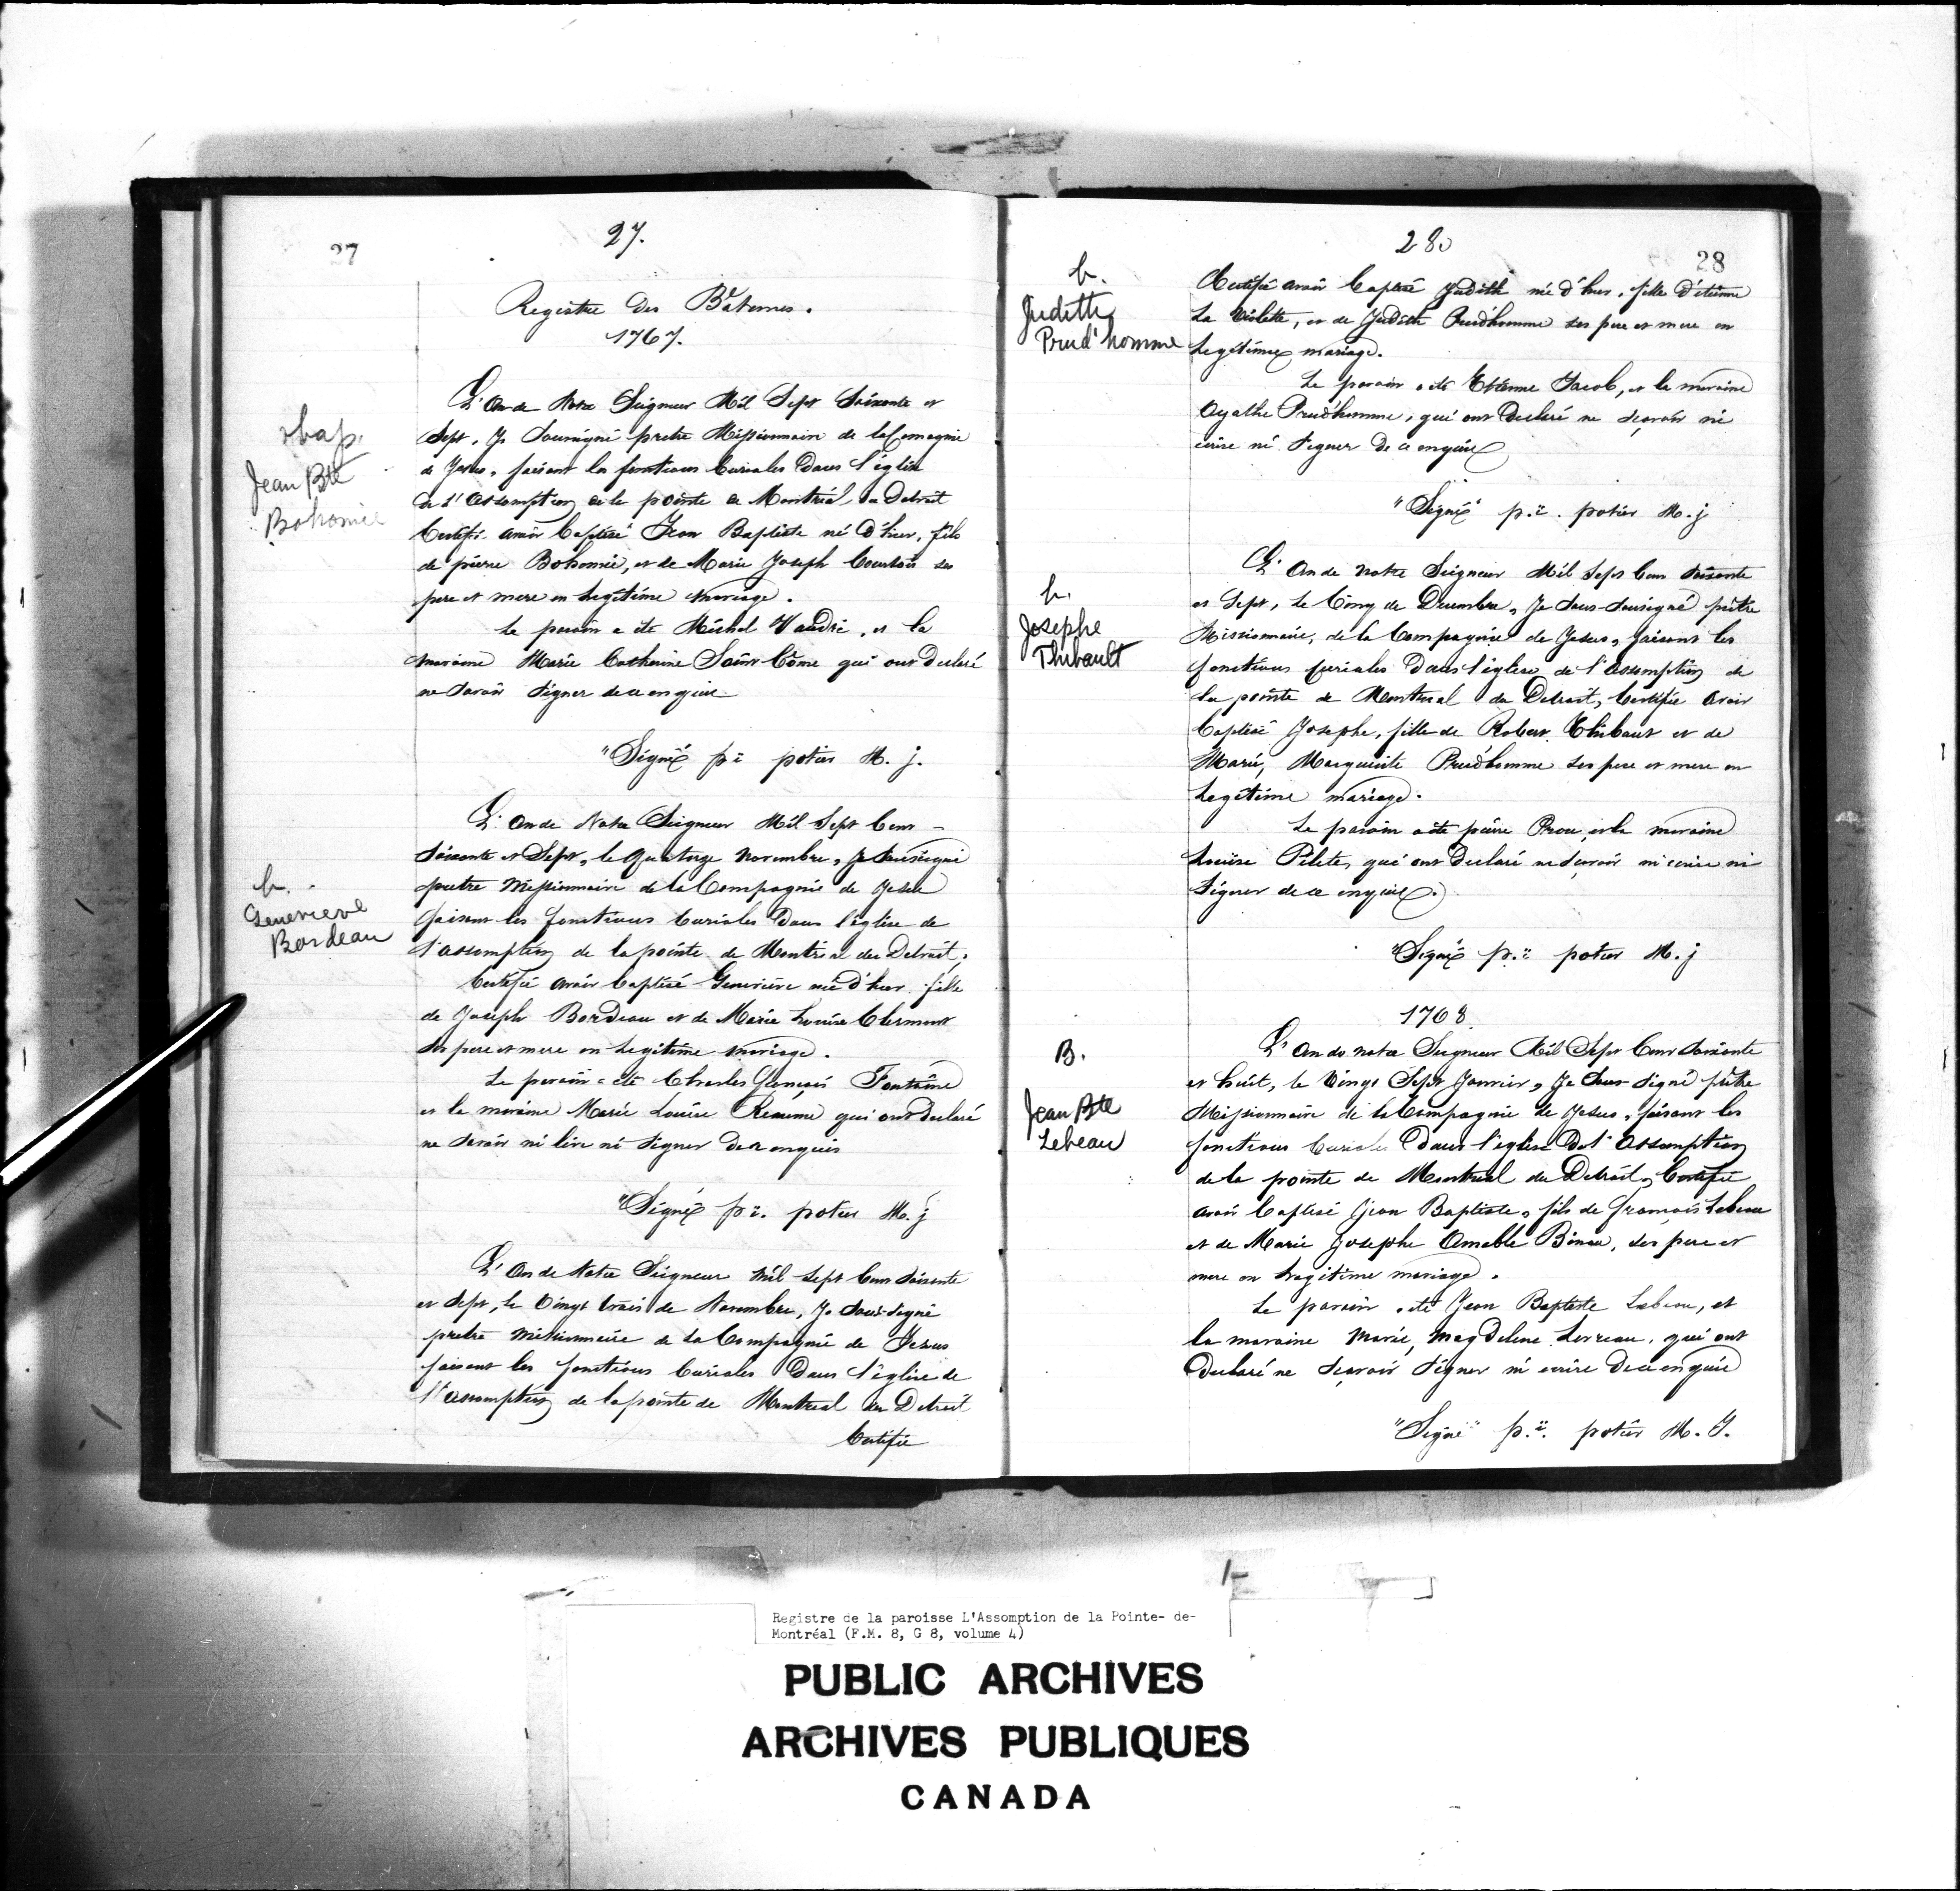 27
27.
Registre des Bâtemes.
1767.
bap.
Jean Bte
Bohomie
L'An de Notre Seigneur Mil Sept Soixante et
Sept, Je Soussigné pretre Missionnaire de la Comagnie
de Jesus, faisant les fonctions Curiales dans l'église
de l'Assomption de la pointe de Montréal du Detroit
Certifie avoir Baptisé Jean Baptiste né d'hier, fils
de pierre Bohomie, et de Marie Joseph Courtois ses
pere et mere en Legitime mariage.
Le parain a été Michel Vaudri, et la
maraine Marie Catherine Saint Côme qui ont declaré
ne savoir signer de ce enquire
"Signé p: potier M. J.
b.
Genevieve
Bordeau
L'an de Notre Seigneur Mil Sept Cent
Soixante et Sept, le Quatorze Novembre, Je Soussigné
pretre Missionnaire de la Compagnie de Jesus
faisant les fonctions Curiales Dans l'église de
l'assomption de la pointe de Montréal du Detroit,
Certifie avoir baptisé Genevieve née d'hier fille
de Joseph Bordeau et de Marie Louise Clermont
ses pere et mere en Legitime mariage.
Le parain a été Charles François Fontaine
et la maraine Marie Louise Reaume qui ont declaré
ne savoir ni lire ni signer de ce enquis
"Signé p:. potier M. j
L'An de Notre Seigneur Mil Sept Cent Soixante
et Sept, le Vingt trois de Novembre, Je Sous-signé
pretre Missionnaire de la Compagnie de Jesus
faisant les fonctions Curiales Dans l'église de
l'assomption de la pointe de Montreal du Detroit
Certifie
28.
28
b.
Judette
Prud'homme
Certifie avoir baptisé Judith née d'hier, fille d'étienne
La Violette, et de Judith Prudhomme ses pere et mere en
Legitime mariage.
Le parain a été Etienne Jacob, et la maraine
Agathe Prudhomme, qui ont declaré ne sçavoir ni
ecrire ni signer de ce enquire
"Signé" p.:. potier M. j
b.
Josephe
Thibault
L'An de notre Seigneur Mil Sept Cent Soixante
et Sept, le Cinq de Decembre, Je Sous-Soussigné prêtre
Missionnaire, de la Compagnie de Jesus, faisant les
fonctions curiales Dans l'église de l'assomption de
la pointe de Montreal du Detroit, Certifie avoir
baptisé Josephe, fille de Robert Thibaut et de
Marie, Marguerite Prudhomme ses pere et mere en
Legitime mariage.
Le parain a été pierre Prou et la maraine
Louise Pilete, qui ont declaré ne sçavoir ni ecrire ni
signer de ce enquire.
"Signé p.: potier M. j
1768.
B.
Jean Bte
Lebeau
L'An de notre Seigneur Mil Sept Cent Soixante
et huit, le Vingt Sept Janvier, Je Sous-signé prêtre
Missionnaire de la Compagnie de Jesus, faisant les
fonctions Curiales Dans l'église De l'Assomption
de la pointe de Montreal du Detroit, Certifie
avoir baptisé Jean Baptiste, fils de françois Lebeau
et de Marie Josephe Amable Bineau, ses pere et
mere en Legitime mariage.
Le parain a été Jean Baptiste Lebeau, et
la maraine Marie, Magdelene Lereau, qui ont
Declaré ne sçavoir signer ni ecrire De ce enquire
"Signé" p.:. potier M. J.
Registre de la paroisse L'Assomption de la Pointe- de-
Montréal (F.M. 8, G 8, volume 4)
PUBLIC ARCHIVES
ARCHIVES PUBLIQUES
CANADA